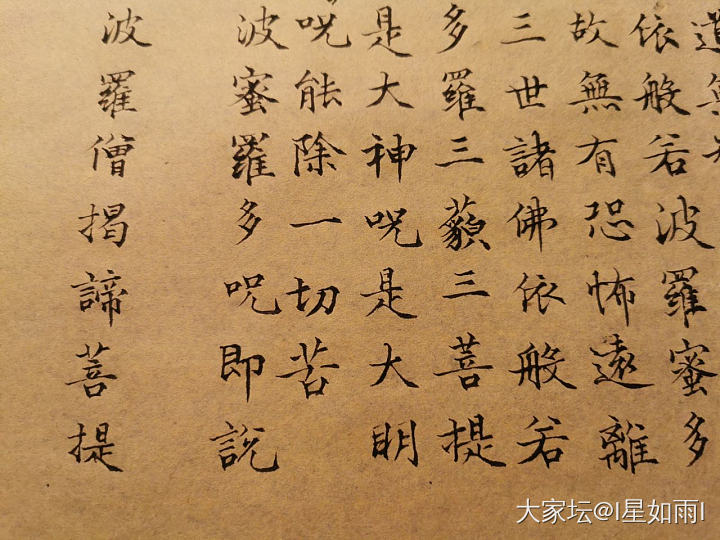 依般若波羅蜜多
故無有恐怖遠離
三世諸佛依般若
多羅三藐三菩提
是大神呪是大明
呪能除一切苦
波蜜羅多呪即說
波羅僧揭諦菩提
大家坛@I星如雨I